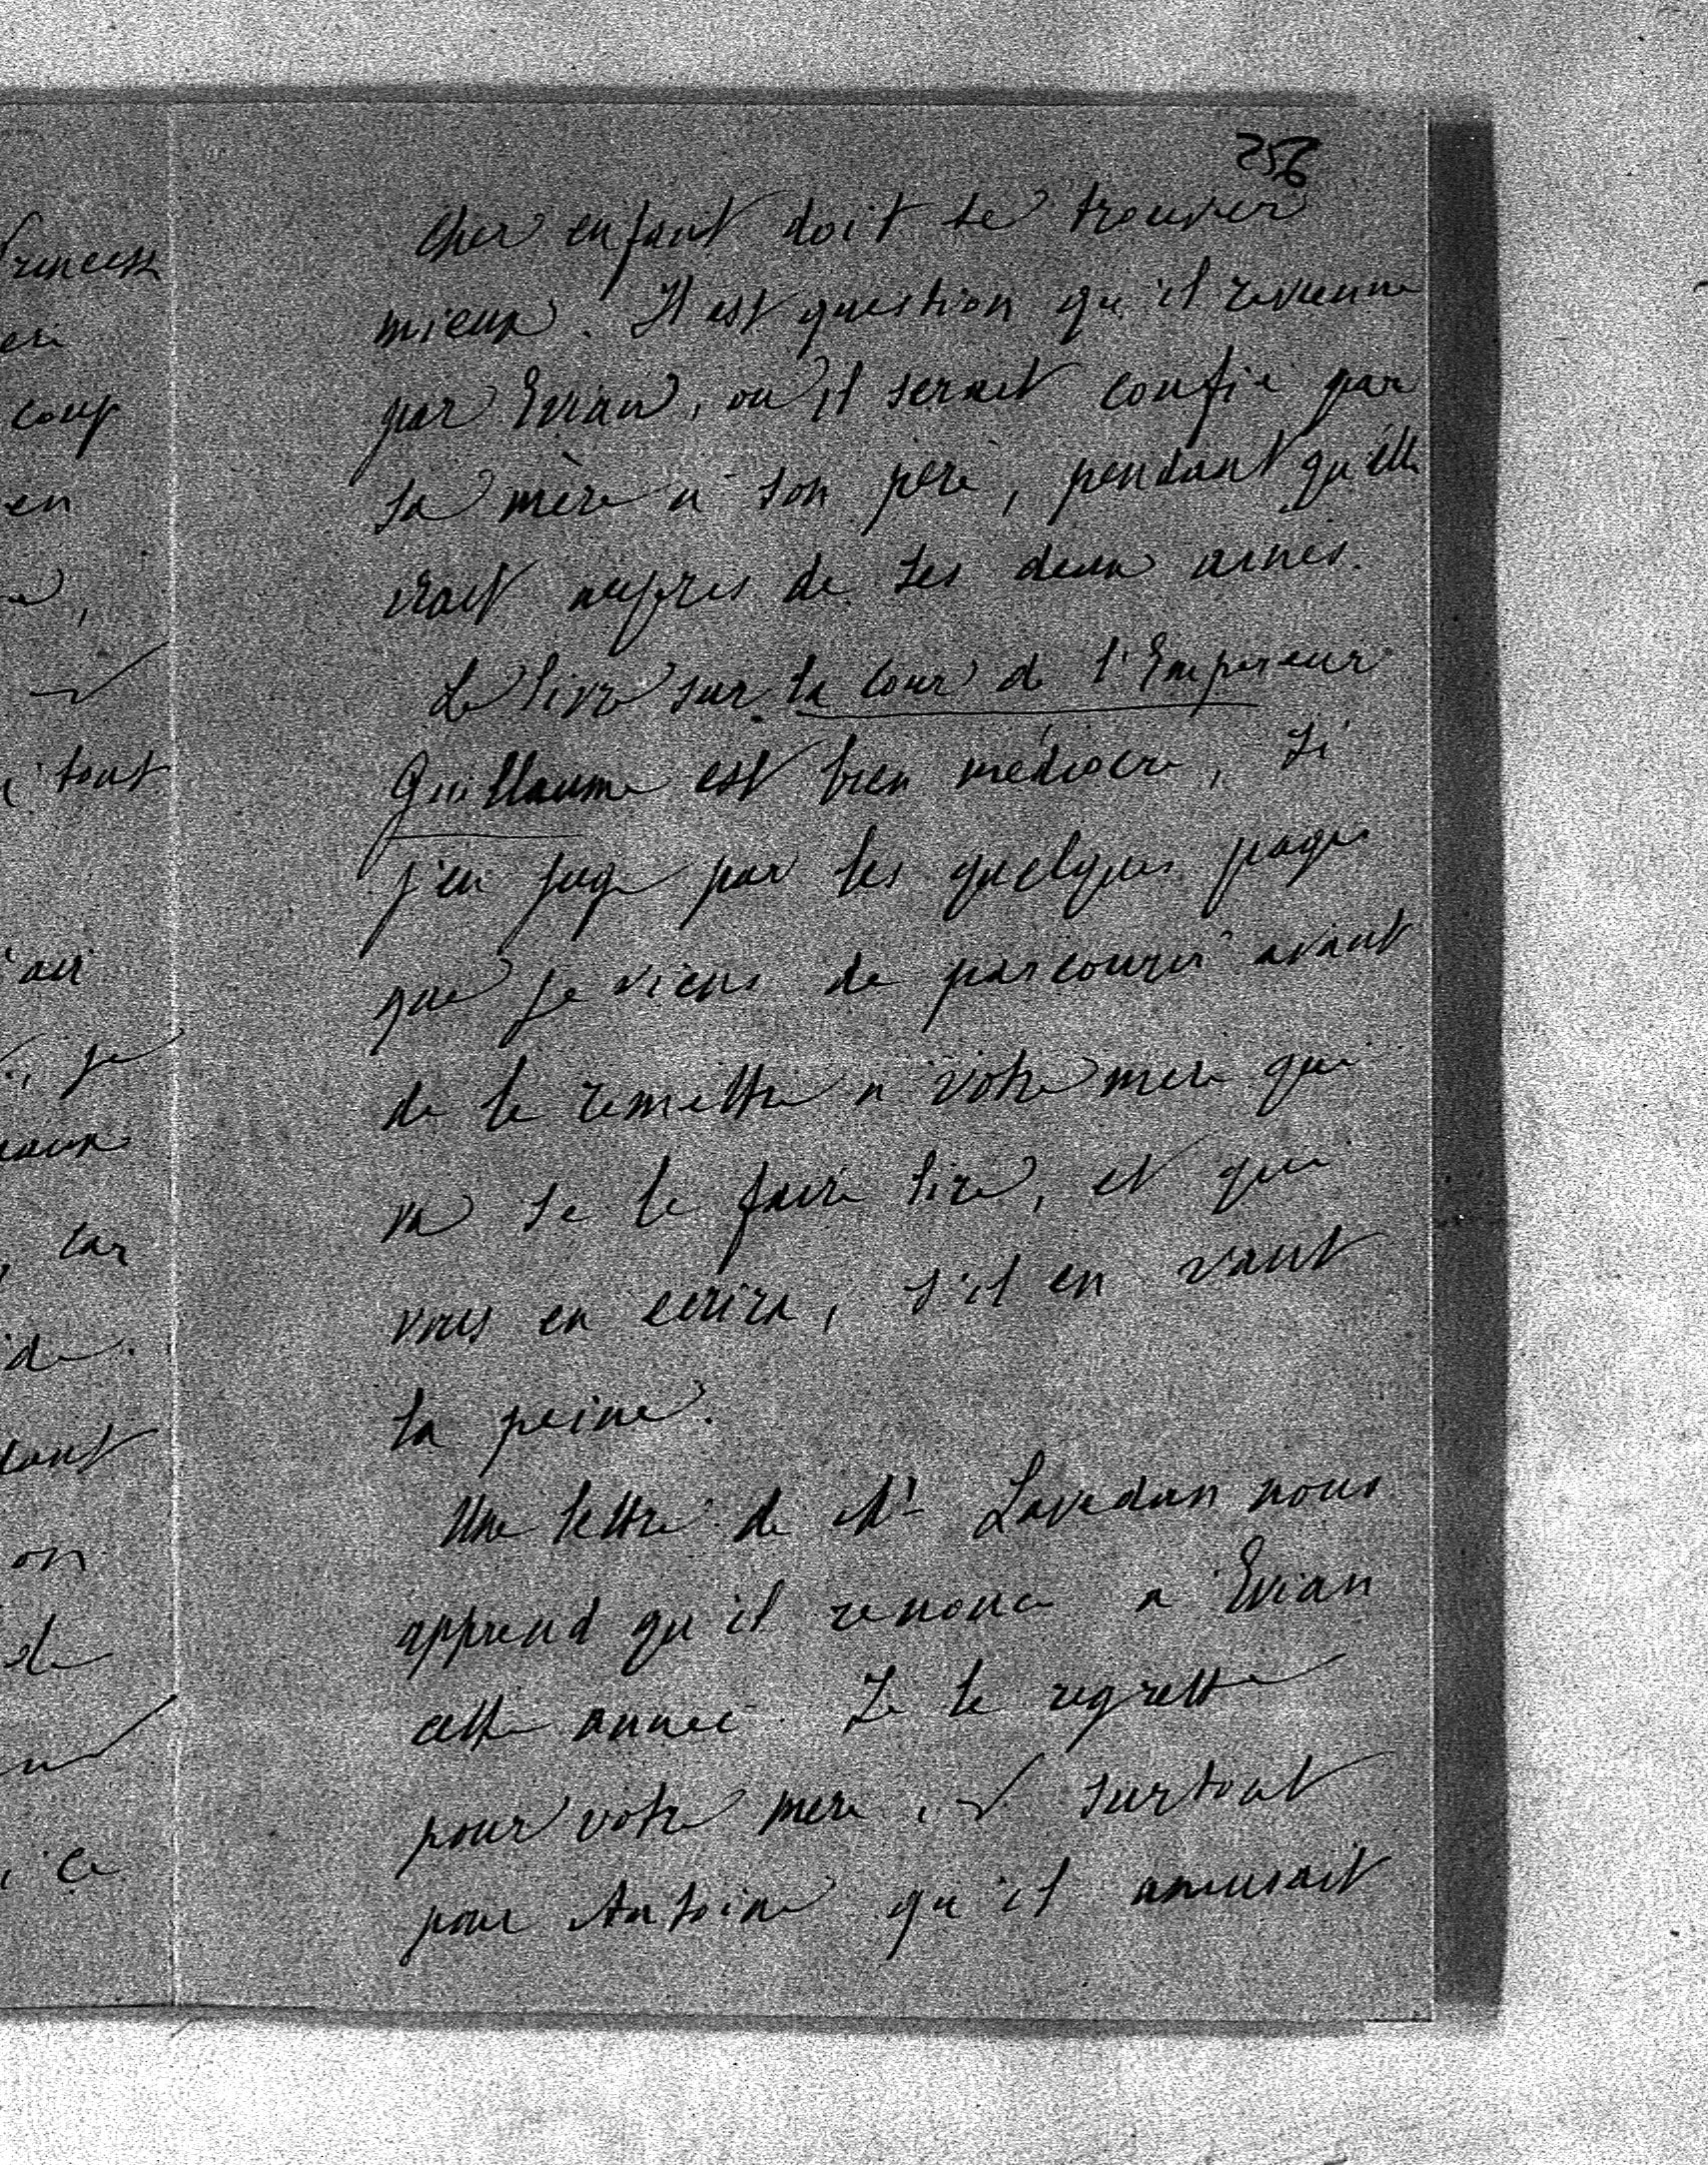 256
cher enfant doit se trouver
mieux. Il est question qu'il revienne
par Evian, ou il serait confié par
sa mère a son père, pendant qu'elle
irait aupres de ses deux ainés.
Le livre sur la Cour de l'Empereur
Guillaume est bien médiocre, si
j'en juge par les quelques pages
que je viens de parcourir avant
de le remettre a votre mere qui
va se le faire lire, et qui
vous en ecrira, s'il en vaut
la peine.
Une lettre de Mr Lavedan nous
apprend qu'il renonce a Evian
cette année. Je le regrette
pour votre mere, et surtout
pour Antoine qu'il amusait
Princesse
coup
en
tout
je
car
on
de
ce